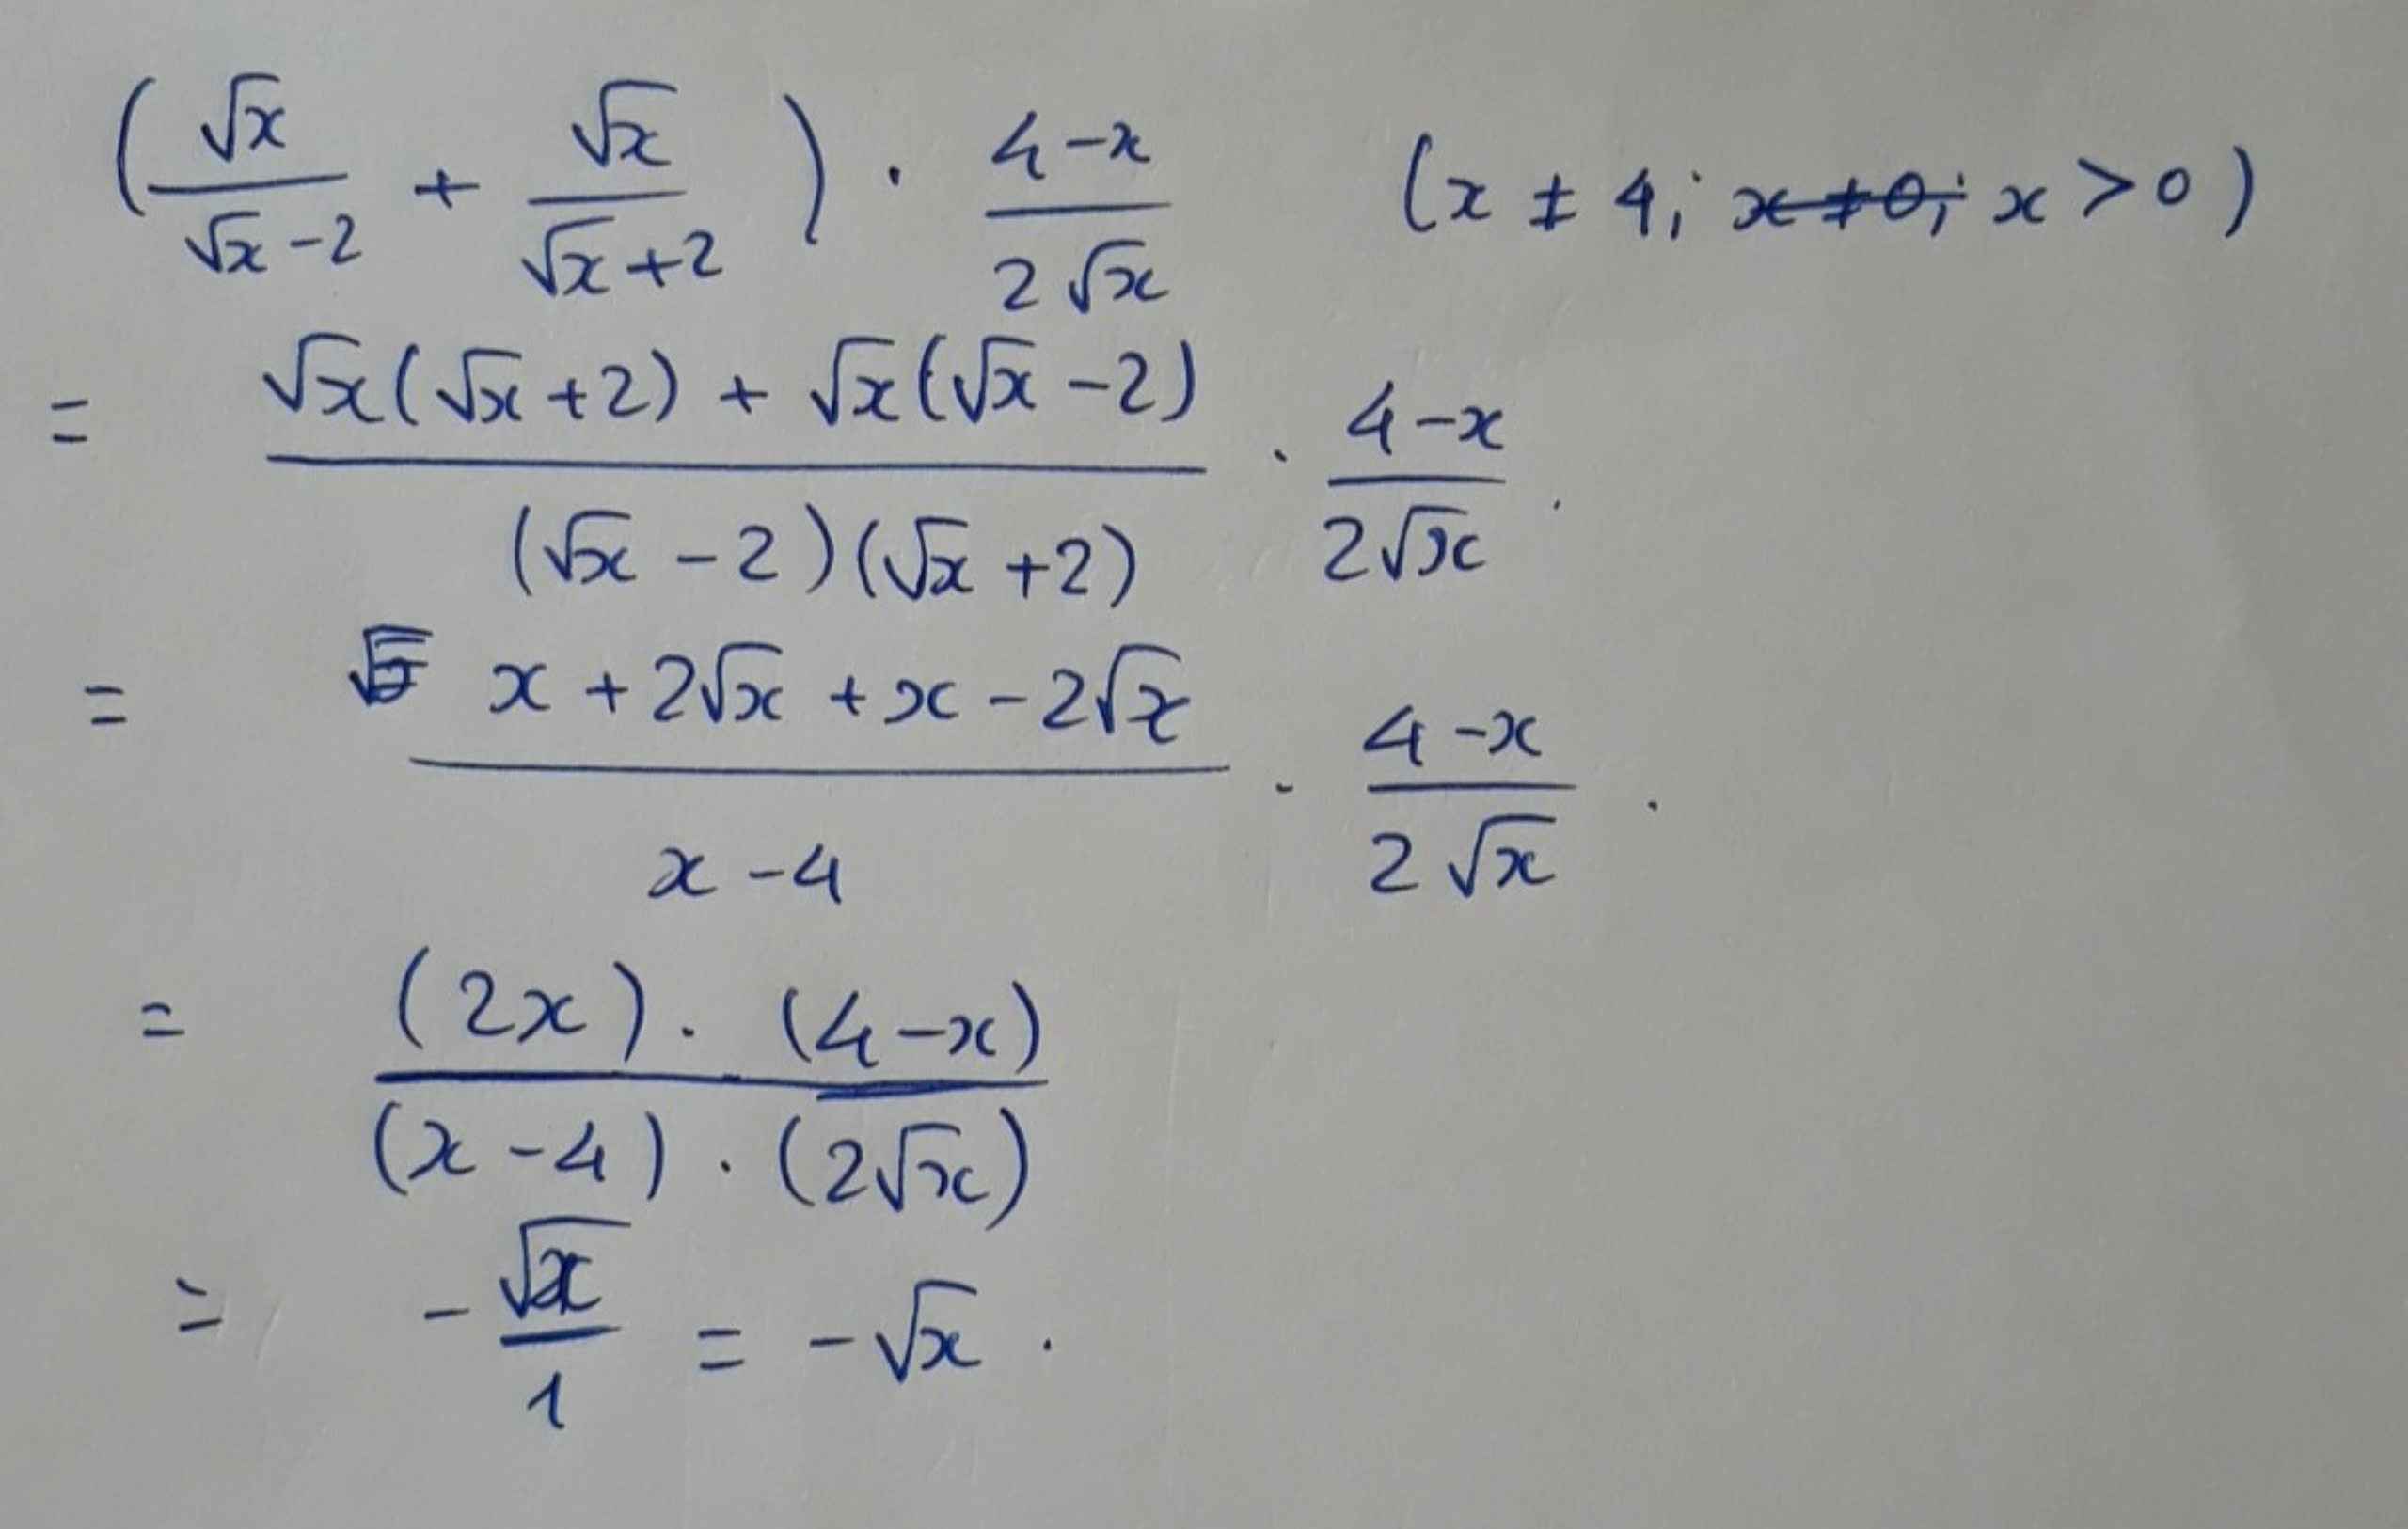 (√x/(√x-2) + √x/(√x+2)) · (4-x)/(2√x) (x ≠ 4; x≠0; x > 0)
= (√x(√x+2) + √x(√x-2))/((√x-2)(√x+2)) · (4-x)/(2√x).
= (x+2√x+x-2√x)/(x-4) · (4-x)/(2√x).
= ((2x)·(4-x))/((x-4)·(2√x))
= -√x/1 = -√x.